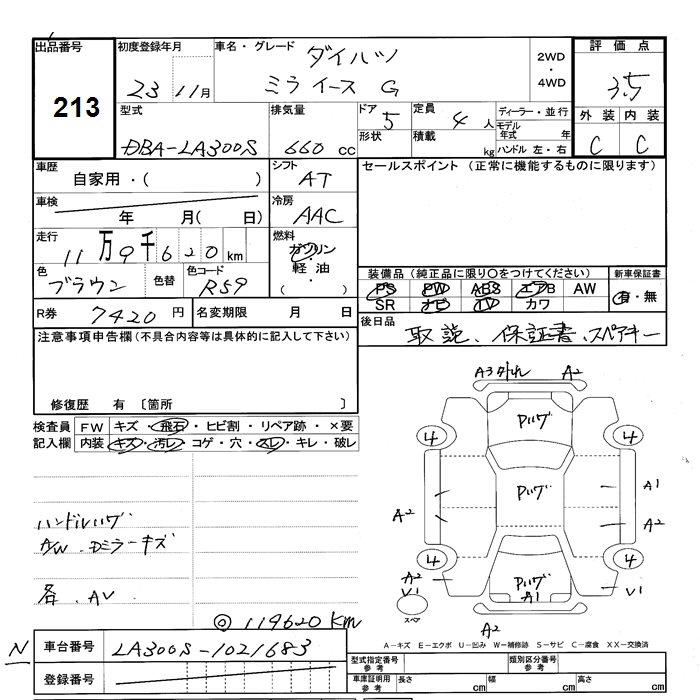 出品番号
213
初度登録年月
23 11月
車名・グレード
ダイハツ
ミライース G
2WD
・
4WD
評価点
3.5
型式
DBA-LA300S
排気量
660 cc
ドア
5
形状
定員
4 人
積載
kg
ディーラー・並行
モデル年式 年
ハンドル 左・右
外装 内装
C C
車歴
自家用・( )
シフト
AT
セールスポイント (正常に機能するものに限ります)
車検
年 月( 日)
冷房
AAC
走行
11万9千620 km
燃料
ガソリン
・
軽油
・
( )
色
ブラウン
色替
色コード
R59
装備品 (純正品に限り〇をつけてください)
PS PW ABS エアB AW
SR ナビ TV カワ
新車保証書
有・無
R券 7420 円
名変期限 月 日
後日品
取説、保証書、スペアキー
注意事項申告欄(不具合内容等は具体的に記入して下さい)
修復歴 有 〔箇所 〕
検査員記入欄
FW キズ・飛石・ヒビ割・リペア跡・×要
内装 キズ・汚レ・コゲ・穴・スレ・キレ・破レ
ハンドルハゲ
A/W、Dミラーキズ
各、AV
◎ 119620 KM
A3外れ A2
Pハゲ
4 4
Pハゲ
A1
A2 A2
4 4
A2
V1
Pハゲ
A1
V1
スペア
A2
A-キズ E-エクボ U-凹み W-補修跡 S-サビ C-腐食 XX-交換済
N
車台番号
LA300S-1021683
登録番号
型式指定番号 参考
類別区分番号 参考
車庫証明用 参考
長さ cm
幅 cm
高さ cm